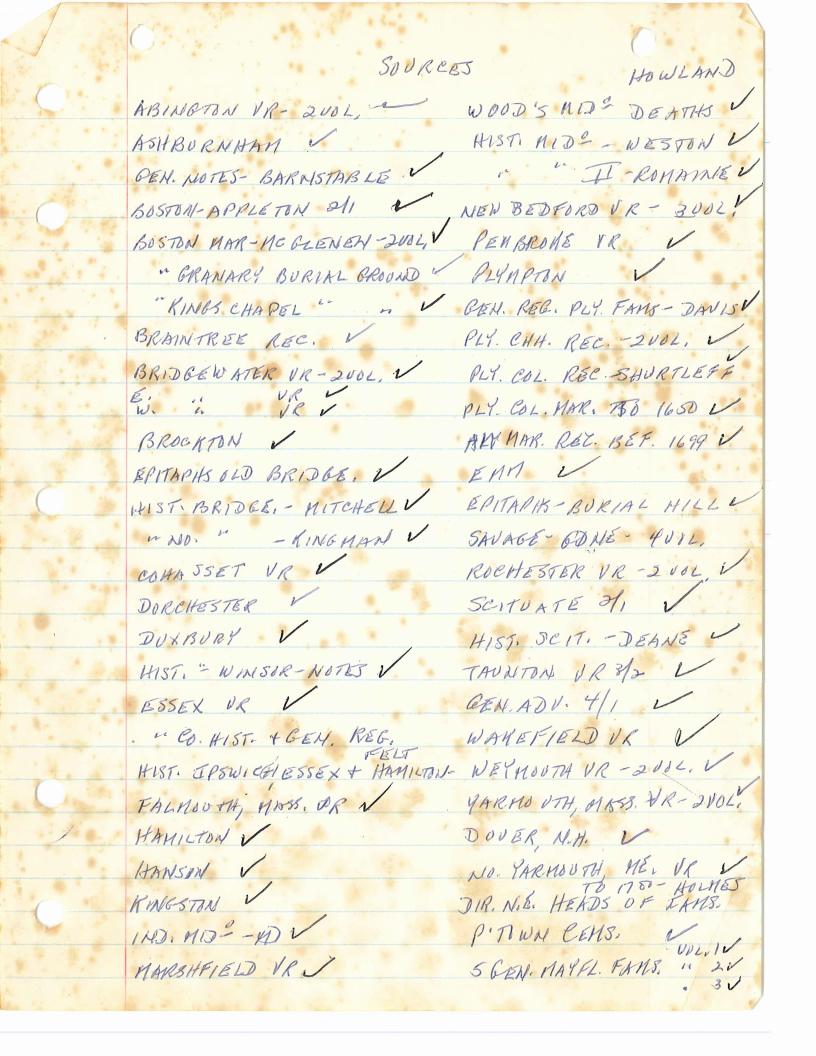 SOURCES
HOWLAND
ABINGTON VR - 2 VOL.
ASHBURNHAM ✓
GEN. NOTES - BARNSTABLE ✓
BOSTON - APPLETON 2/1 ✓
BOSTON MAR - MCGLENEN - 2 VOL. ✓
" GRANARY BURIAL GROUND ✓
" KINGS CHAPEL " " ✓
BRAINTREE REC. ✓
BRIDGEWATER VR - 2 VOL. ✓
E. " VR ✓
W. " VR ✓
BROCKTON ✓
EPITAPHS OLD BRIDGE. ✓
HIST. BRIDGE. - MITCHELL ✓
" NO. " - KINGMAN ✓
COHASSET VR ✓
DORCHESTER ✓
DUXBURY ✓
HIST. " WINSOR - NOTES ✓
ESSEX VR ✓
" CO. HIST. + GEN. REG.
FELT
HIST. IPSWICH, ESSEX + HAMILTON -
FALMOUTH, MASS. VR ✓
HAMILTON ✓
HANSON ✓
KINGSTON ✓
IND. MIDº -
MARSHFIELD VR ✓
WOOD'S MIDº DEATHS ✓
HIST. MIDº - WESTON ✓
" " II - ROMAINE ✓
NEW BEDFORD VR - 3 VOL. ✓
PEMBROKE VR ✓
PLYMPTON ✓
GEN. REG. PLY. FAMS - DAVIS ✓
PLY. CHH. REC. - 2 VOL. ✓
PLY. COL. REC. SHURTLEFF ✓
PLY. COL. MAR. TO 1650 ✓
MAR. REC. BEF. 1699 ✓
EMM ✓
EPITAPHS - BURIAL HILL ✓
SAVAGE - GDNE - 4 VOL.
ROCHESTER VR - 2 VOL. ✓
SCITUATE 2/1 ✓
HIST. SCIT. - DEANE ✓
TAUNTON VR 3/2 ✓
GEN. ADV. 4/1 ✓
WAKEFIELD VR ✓
WEYMOUTH VR - 2 VOL. ✓
YARMOUTH, MASS. VR - 2 VOL. ✓
DOVER, N.H. ✓
NO. YARMOUTH, ME. VR ✓
TO 1700 - HOLMES
DIR. N.E. HEADS OF FAMS.
P'TOWN CEMS. ✓
VOL. 1 ✓
5 GEN. MAYFL. FAMS. " 2 ✓
" 3 ✓